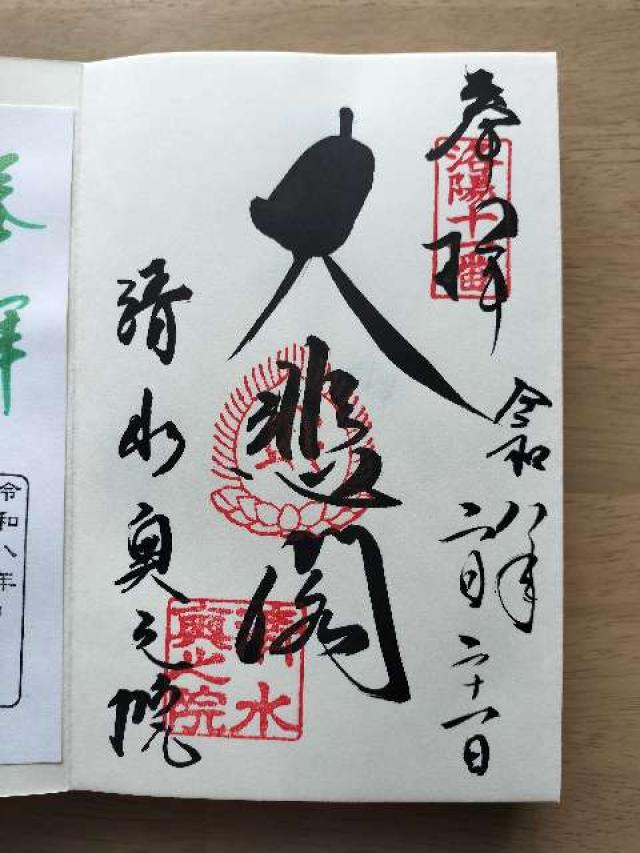 奉拝
洛陽十一番
令和八年
二月二十一日
大悲閣
清水奥之院
清水
奥之院
奉拝
令和八年